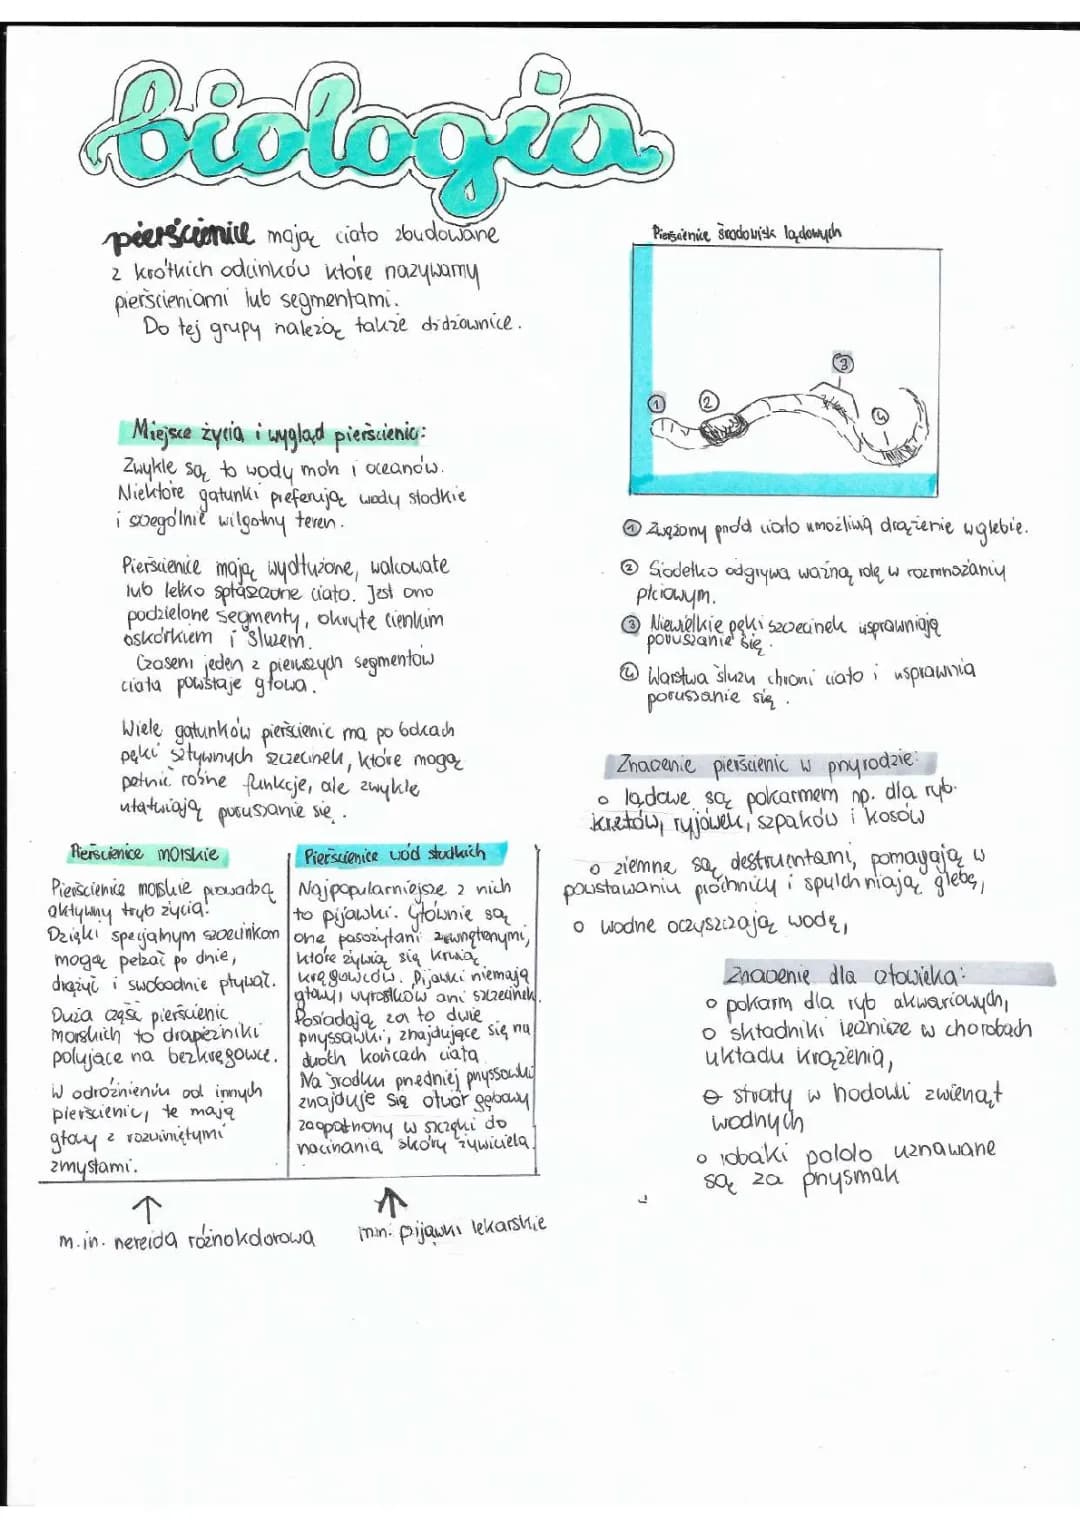 biologia
pierścienice mają ciało zbudowane
z krótkich odcinków które nazywamy
pierścieniami lub segmentami.
Do tej grupy należą także dżdżownice.
Miejsce życia i wygląd pierścienic:
Zwykle są to wody mórz i oceanów.
Niektóre gatunki preferują wody słodkie
i szególnie wilgotny teren.
Pierścienice mają wydłużone, walcowate
lub lekko spłaszczone ciało. Jest ono
podzielone segmenty, okryte cienkim
oskórkiem i śluzem.
Czasem jeden z pierwszych segmentów
ciała powstaje głowa.
Wiele gatunków pierścienic ma po bokach
pęki sztywnych szczecinek, które mogą
pełnić różne funkcje, ale zwykle
ułatwiają poruszanie się.
Pierścienice morskie
Pierścienice morskie prowadzą
aktywny tryb życia.
Dzięki specjalnym szczecinkom
mogą pełzać po dnie,
drążyć i swobodnie pływać.
Duża część pierścienic
morskich to drapieżniki
polujące na bezkręgowce.
W odróżnieniu od innych
pierścienic, te mają
głowy z rozwiniętymi
zmysłami.
m.in. nereida różnokolorowa
Pierścienice wód słodkich
Najpopularniejsze z nich
to pijawki. Głównie są
one pasożytami zewnętrznymi,
które żywią się krwią
kręgowców. Pijawki niemają
głowy, wyrostków ani szczecinek.
Posiadają za to dwie
przyssawki, znajdujące się na
dwóch końcach ciała
Na środku przedniej przyssawki
znajduje się otwór gębowy
zaopatrzony w szczęki do
nacinania skóry żywiciela.
m.in. pijawki lekarskie
Pierścienice środowisk lądowych
1
2
3
4
1 Zwężony przód ciała umożliwia drążenie w glebie.
2 Siodełko odgrywa ważną rolę w rozmnażaniu
płciowym.
3 Niewielkie pęki szczecinek usprawniają
poruszanie się.
4 Warstwa śluzu chroni ciało i usprawnia
poruszanie się.
Znaczenie pierścienic w przyrodzie:
o lądowe są pokarmem np. dla ryb.
kretów, ryjówek, szpaków i kosów
o ziemne są destruentami, pomagają w
powstawaniu próchnicy i spulchniają glebę,
o wodne oczyszczają wodę,
Znaczenie dla człowieka:
o pokarm dla ryb akwariowych,
o składniki lecznicze w chorobach
układu krążenia,
o straty w hodowli zwierząt
wodnych
o robaki pololo uznawane
są za przysmak